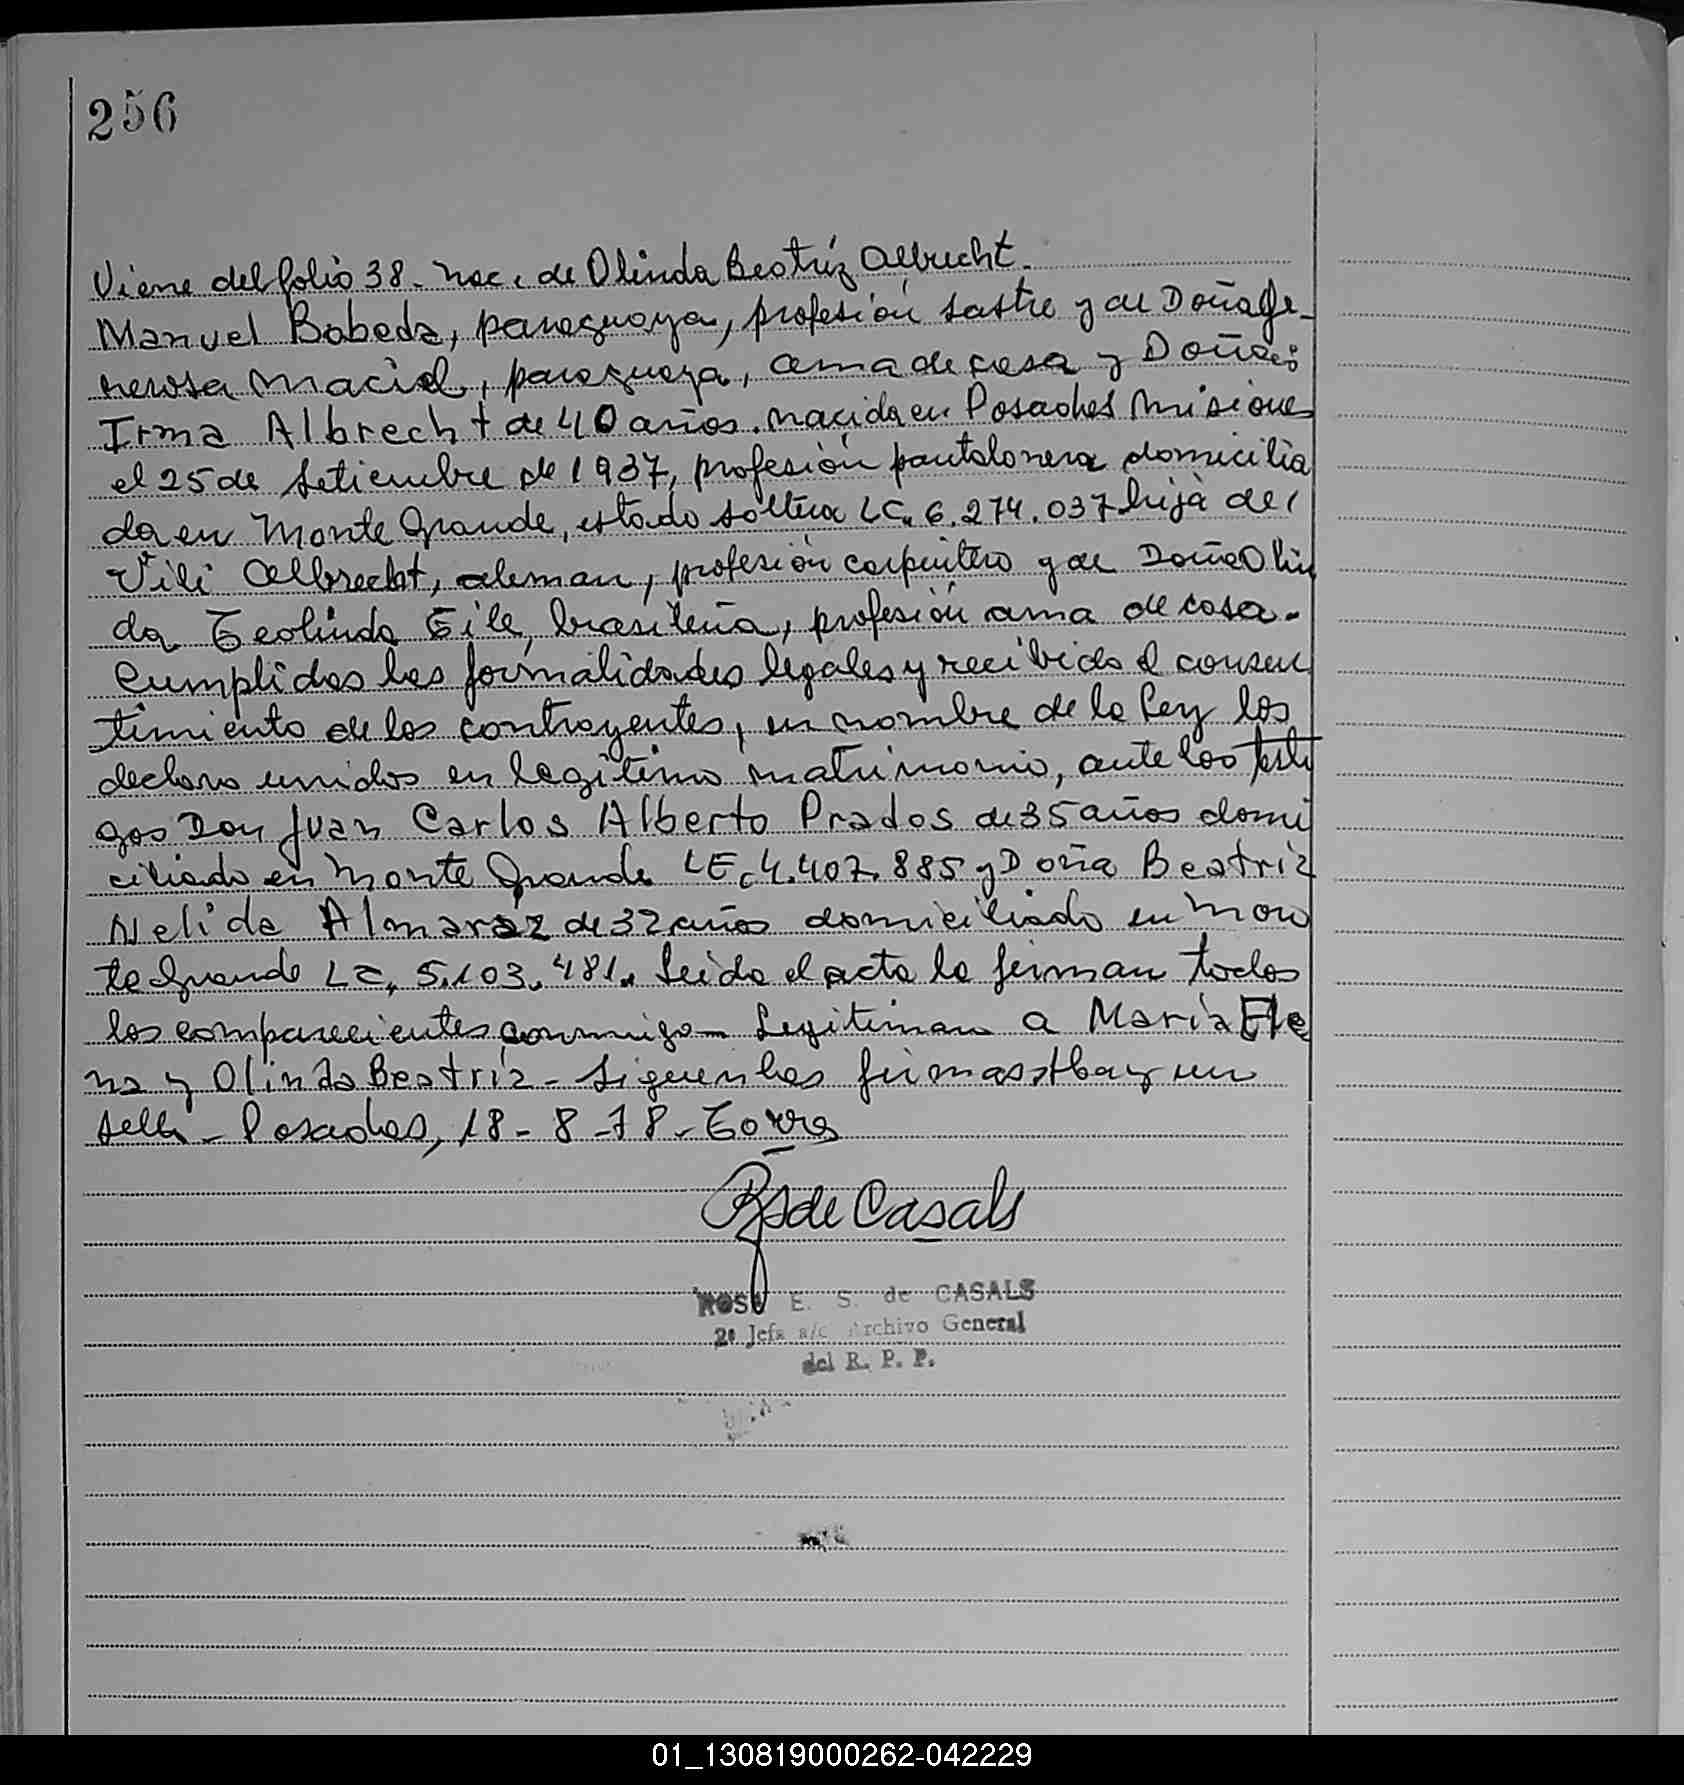 256
Viene del folio 38. nac. de Olinda Beatríz Albrecht.
Manuel Bobeda, paraguaya, profesión sastre y de Doña Ge-
nerosa Maciel, paraguaya, ama de casa y Doña:
Irma Albrecht de 40 años. nacida en Posadas Misiones
el 25 de Setiembre de 1937, profesión pantalonera domicilia
da en Monte Grande, estado soltera LC. 6.274.037 hija de
Vili Albrecht, aleman, profesión carpintero y de Doña Olin
da Teolinda Eile, brasileña, profesión ama de casa.
Cumplidas las formalidades legales y recibido el consen
timiento de los contrayentes, en nombre de la Ley los
declaro unidos en legítimo matrimonio, ante los testi
gos Don Juan Carlos Alberto Prados de 35 años domi
ciliado en Monte Grande LE. 4.407.885 y Doña Beatriz
Nelida Almaraz de 32 años domiciliado en Mon
te Grande LC. 5.103.481. Leida el acta la firman todos
los comparecientes conmigo - Legitiman a María Ele
na y Olinda Beatríz - Siguen las firmas Hay un
sello - Posadas, 18-8-78 -
RS de Casals
ROSA E. S. de CASALS
2º Jefa a/c Archivo General
del R. P. P.
01_130819000262-042229